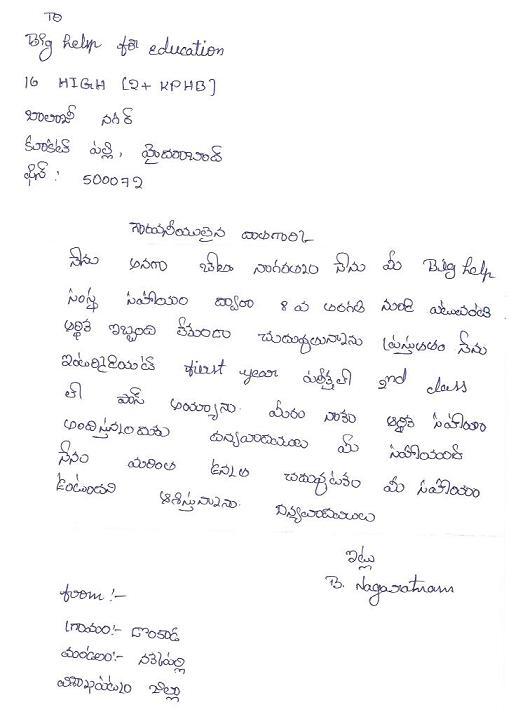 TO
Big help for education
16 HIGH [2+ KPHB]
బాలాజీ నగర్
కూకట్ పల్లి, హైదరాబాద్
పిన్ : 500072
గౌరవనీయులైన దాతగారికి
నేను అనగా బోజా నాగరత్నం నేను మీ Big help
సంస్థ సహాయం ద్వారా 8 వ తరగతి నుండి ఎటువంటి
ఆర్థిక ఇబ్బంది లేకుండా చదువుతున్నాను ప్రస్తుతం నేను
ఇంటర్మీడియట్ first year పరీక్షల్లో 2nd class
లో పాస్ అయ్యాను. మీరు నాకు ఆర్థిక సహాయం
అందిస్తున్నందుకు ధన్యవాదములు మీ సహాయంతో
నేను మరింత ఉన్నత చదువులకు మీ సహాయం
ఉంటుందని ఆశిస్తున్నాను. ధన్యవాదములు
ఇట్లు
B. Nagaratnam
from :-
గ్రామం:- దొండపూడి
మండలం:-
విశాఖపట్నం జిల్లా